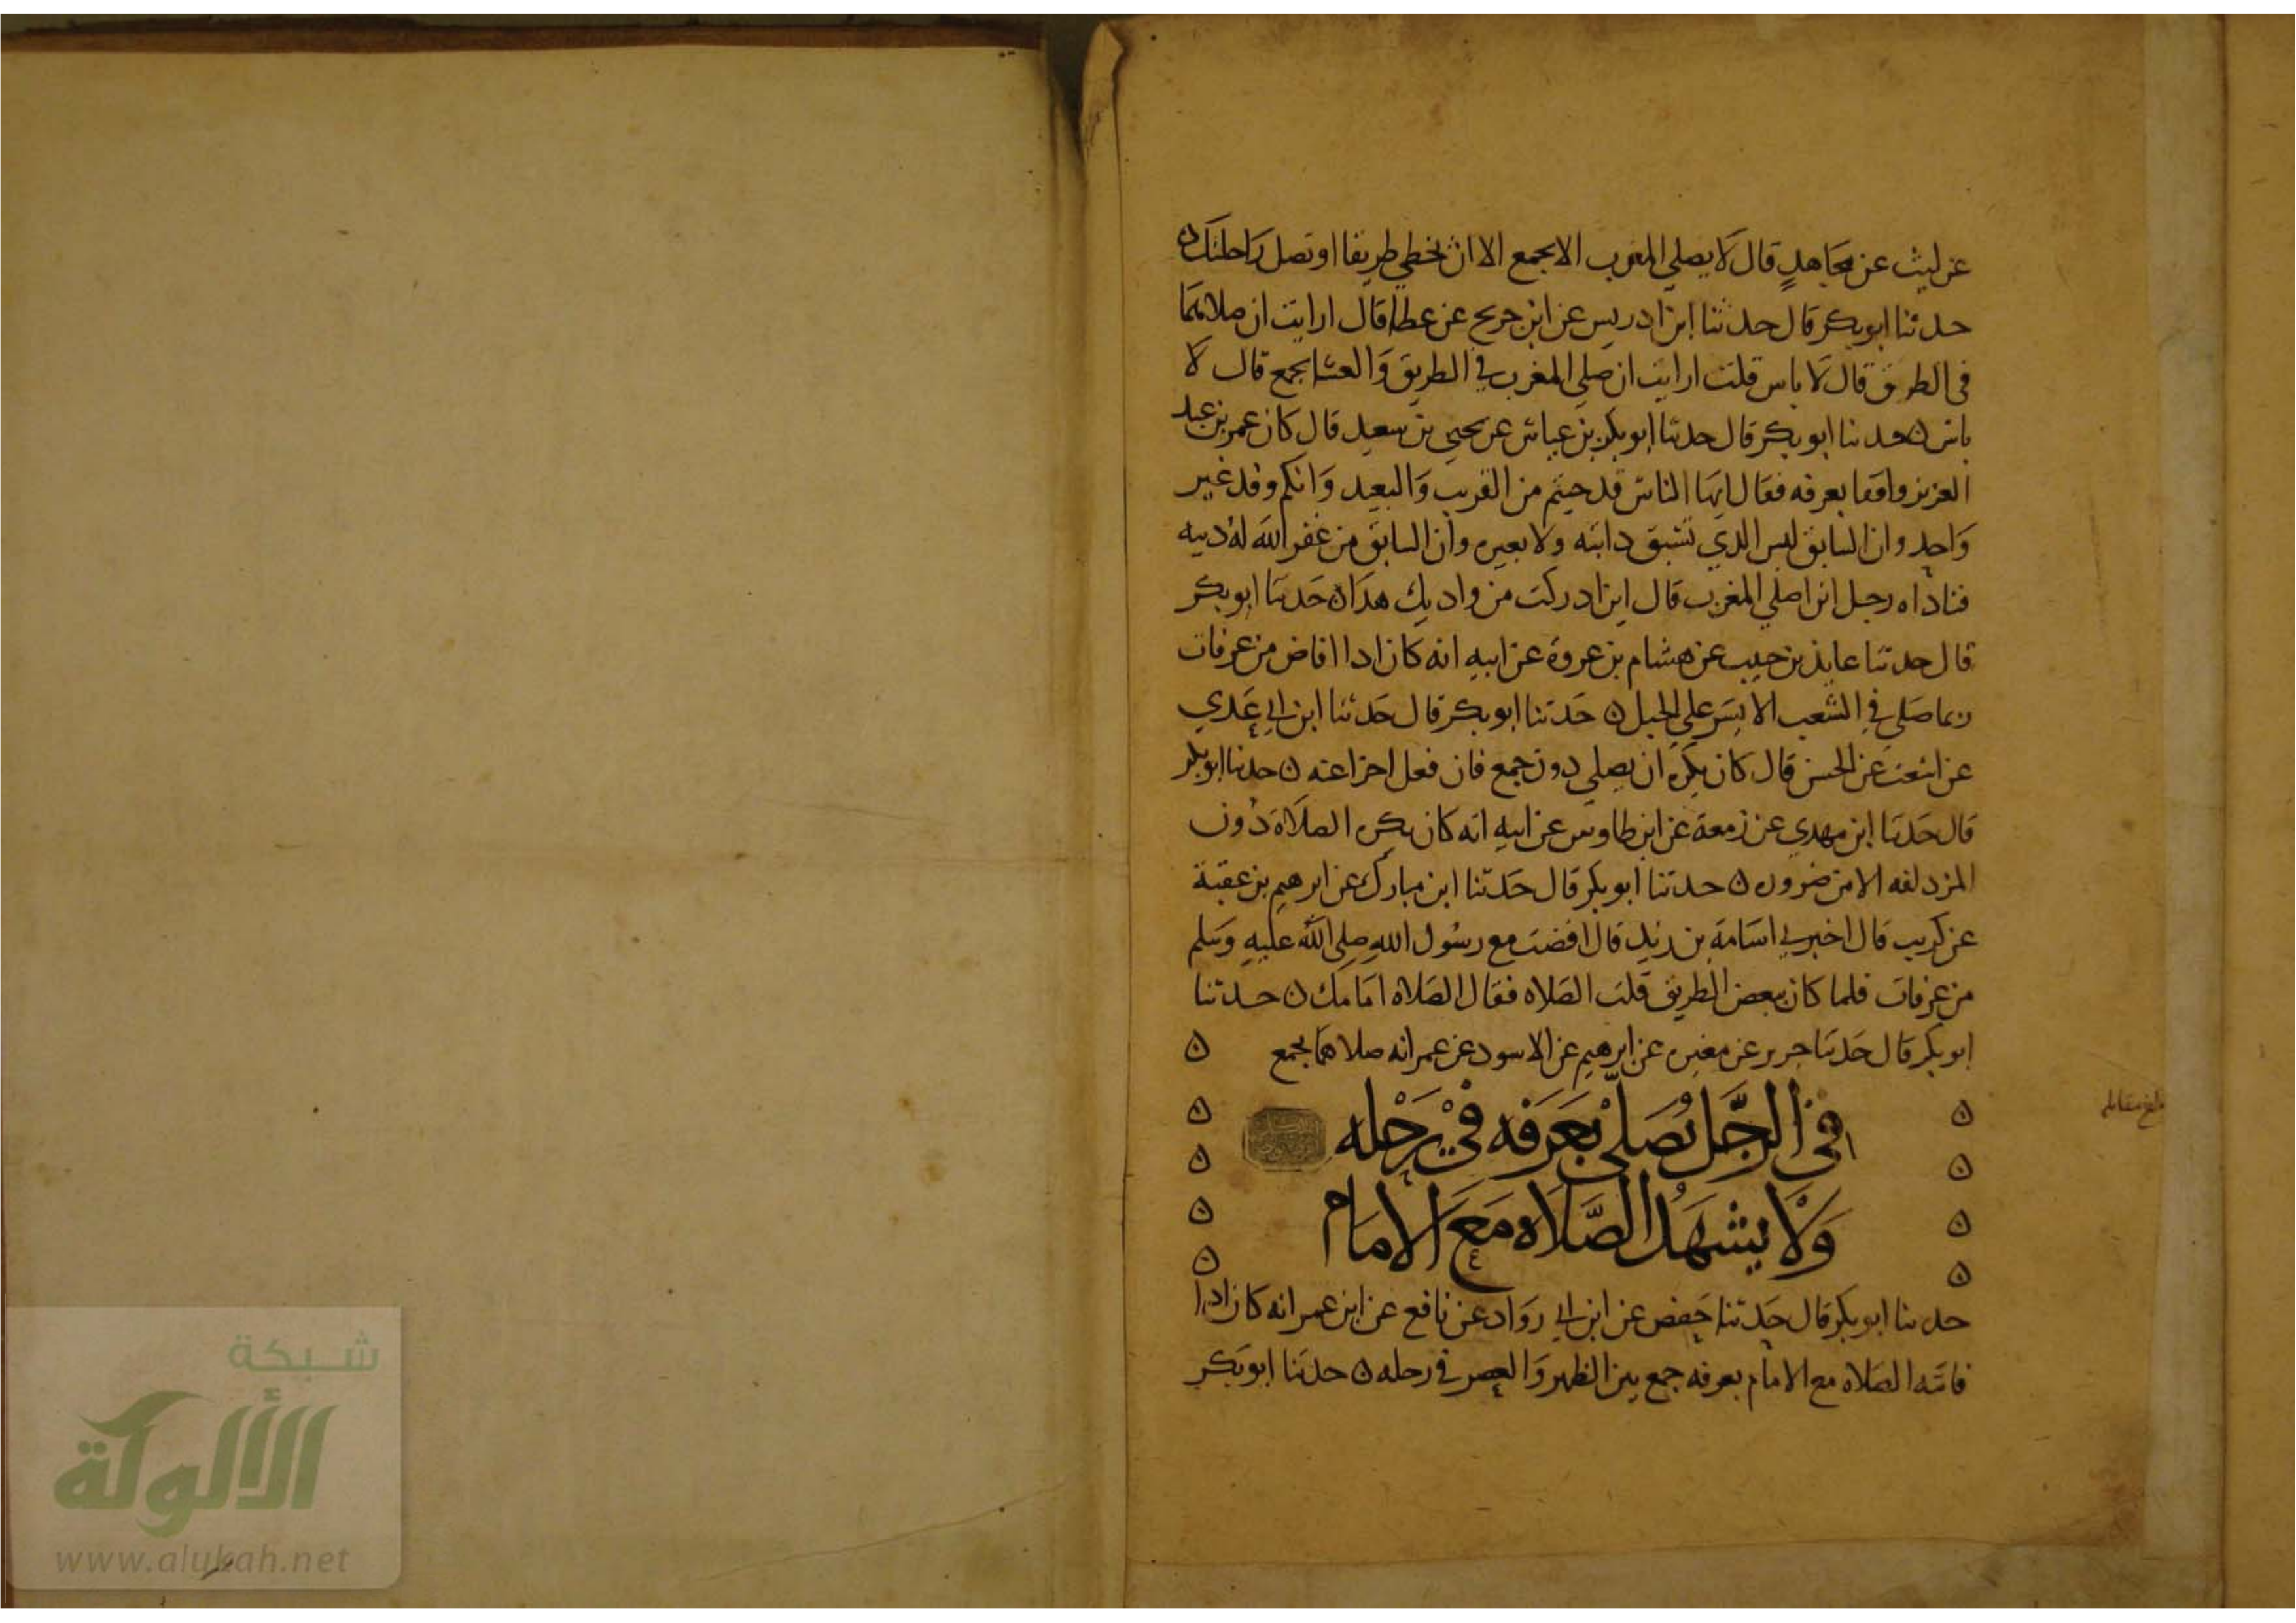 عن ليث عن مجاهد قال لا يصلي المغرب الا بجمع الا ان تخطي طريقا او تضل راحلتك ن
حدثنا ابو بكر قال حدثنا ابن ادريس عن ابن جريج عن عطا قال ارايت ان صلاهما
في الطريق قال لا باس قلت ارايت ان صلى المغرب في الطريق والعشا بجمع قال لا
باس ن حدثنا ابو بكر قال حدثنا ابو بكر بن عياش عن يحيى بن سعيد قال كان عمر بن عبد
العزيز واقفا بعرفه فقال ايها الناس قد جيتم من القريب والبعيد وانكم وفد غير
واحد وان السابق ليس الذي تسبق دابته ولا بعيره وان السابق من غفر الله له ذنبه
فناداه رجل اين اصلي المغرب قال اين ادركت من واديك هذا ن حدثنا ابو بكر
قال حدثنا عايذ بن حبيب عن هشام بن عروة عن ابيه انه كان اذا افاض من عرفات
ربما صلى في الشعب الايسر على الجبل ن حدثنا ابو بكر قال حدثنا ابن ابي عدي
عن اشعث عن الحسن قال كان يكره ان يصلي دون جمع فان فعل اجزا عنه ن حدثنا ابو بكر
قال حدثنا ابن مهدي عن زمعة عن ابن طاوس عن ابيه انه كان يكره الصلاة دون
المزدلفه الا من ضروره ن حدثنا ابو بكر قال حدثنا ابن مبارك عن ابرهيم بن عقبة
عن كريب قال اخبرني اسامة بن زيد قال افضت مع رسول الله صلى الله عليه وسلم
من عرفات فلما كان ببعض الطريق قلت الصلاه فقال الصلاه امامك ن حدثنا
ابو بكر قال حدثنا جرير عن مغيره عن ابرهيم عن الاسود عن عمر انه صلاهما بجمع ن
في الرجل يصلي بعرفه في رحله
ولا يشهد الصلاه مع الامام
حدثنا ابو بكر قال حدثنا حفص عن ابن ابي رواد عن نافع عن ابن عمر انه كان اذا
فاتته الصلاه مع الامام بعرفه جمع بين الظهر والعصر في رحله ن حدثنا ابو بكر
بلغ مقابله
شبكة
الألوكة
www.alukah.net